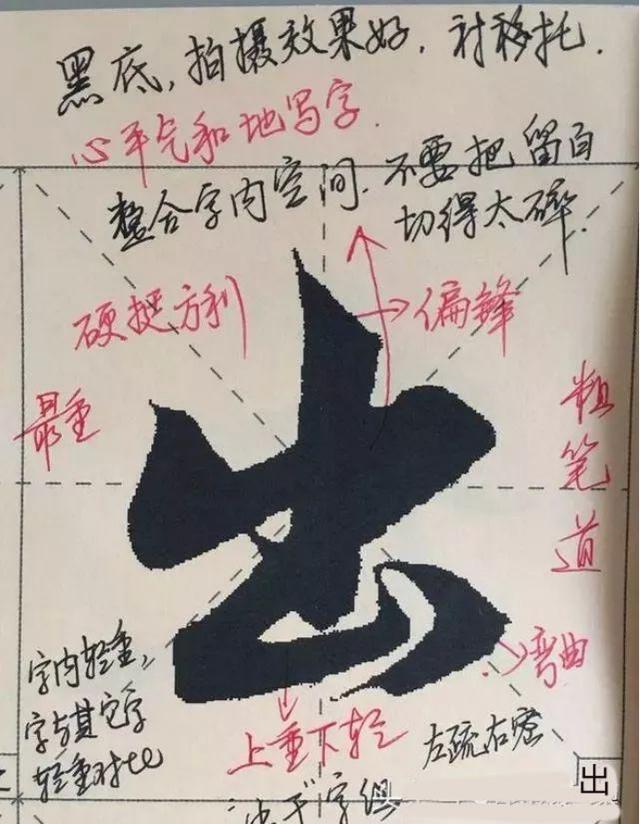 黑底,拍摄效果好,衬移托.
心平气和地写字.
整合字内空间.不要把留白
切得太碎.
硬挺方利
偏锋
最重
粗笔道
出
弯曲
字内轻重,
字与其它字
轻重对比
上重下轻
左疏右密
字组
出